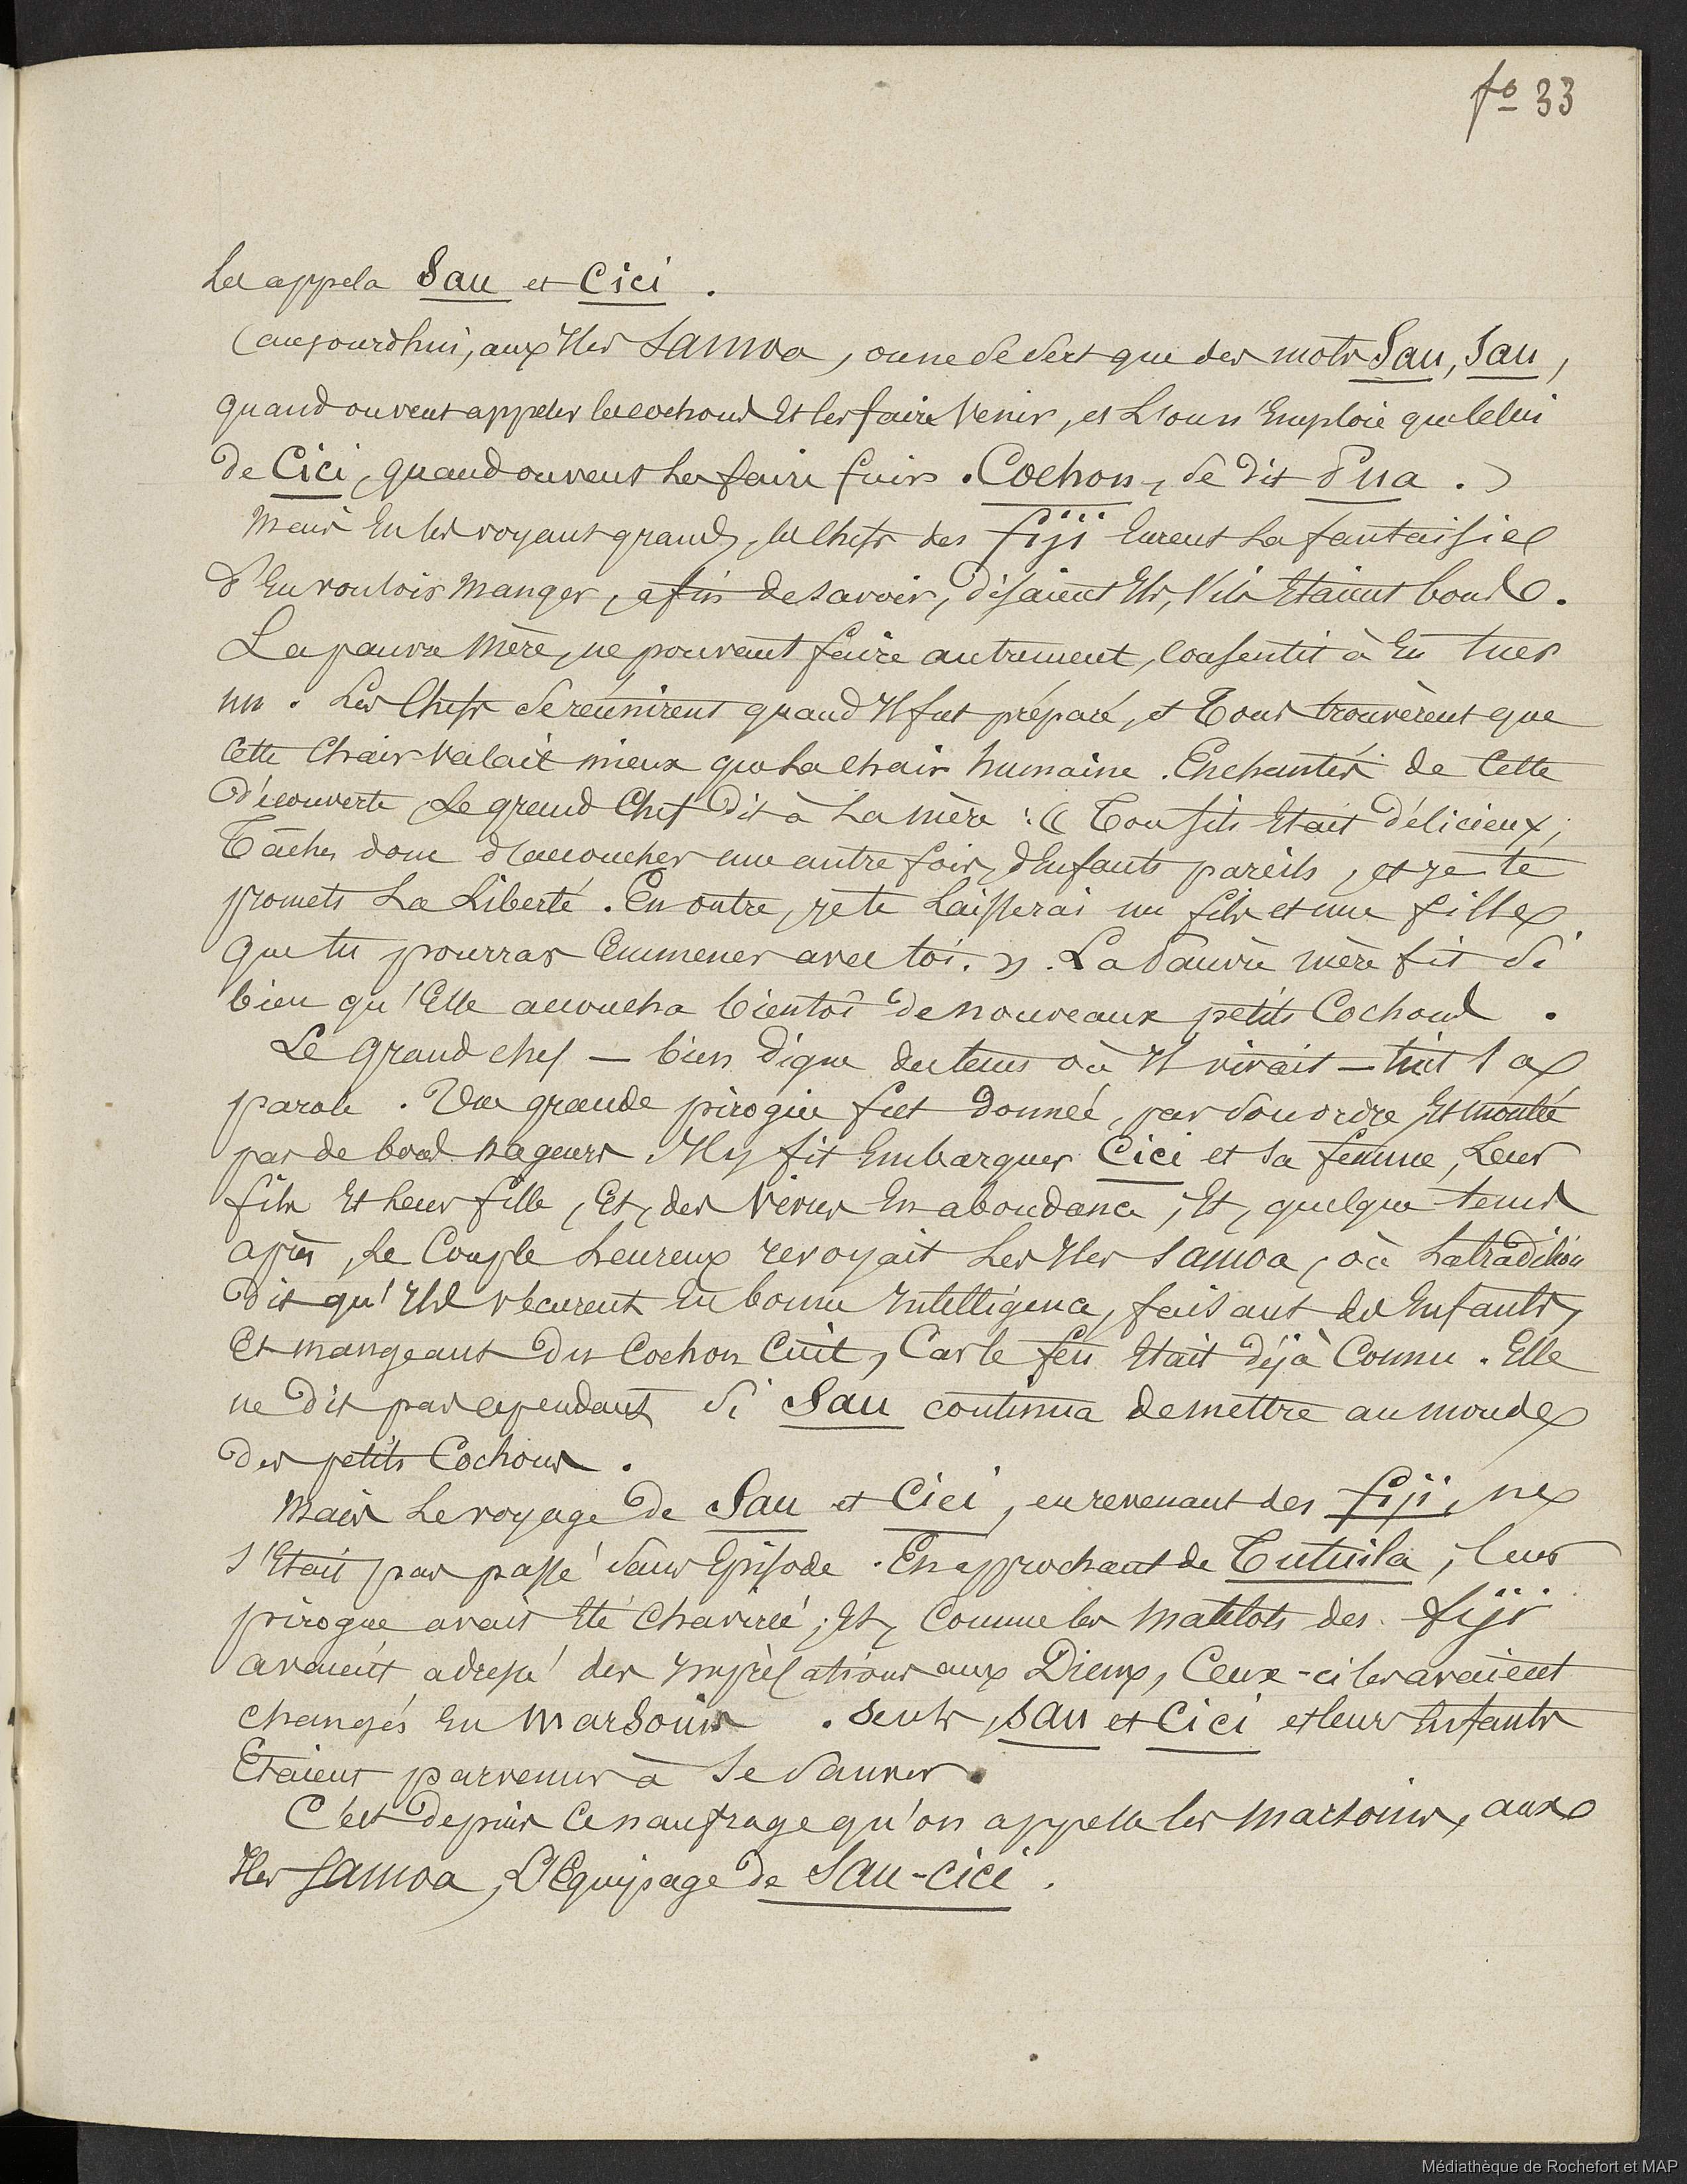 fo 33
les appela Sau et Cici.
(aujourdhui, aux Iles Samoa, on ne se sert que des mots Sau, Sau,
quand on veut appeler les cochons Et les faire Venir, et L'on n'Emploie que celui
de Cici, quand on veut les faire fuir. Cochon, se dit Pua.)
Mais En les voyant grands, les Chefs des fiji Eurent la fantaisie
d'En vouloir Manger, afin de savoir, disaient Ils, s'ils Etaient bons.
La pauvre Mère, ne pouvant faire autrement, Consentit à En tuer
un. Les Chefs se réunirent quand Il fut préparé, et Tous trouvèrent que
Cette Chair Valait mieux que La chair humaine. Enchantés de Cette
découverte, Le grand Chef dit à La mère : « Ton fils Etait délicieux;
Tâches donc d'accoucher une autre fois, d'Enfants pareils, et je te
promets La Liberté. En outre, je te Laisserai un fils et une fille
que tu pourras Emmener avec toi. ». La Pauvre mère fit si
bien qu'Elle accoucha bientôt de nouveaux petits Cochons.
Le Grand chef — bien digne du tems où Il vivait — tint sa
parole. Une grande pirogue fut donnée, par son ordre Et montée
par de bons nageurs. Il y fit Embarquer Cici et sa femme, Leur
fils Et Leur fille, Et, des Vivres En abondance ; Et, quelque tems
après, Le Couple heureux revoyait Les Iles Samoa, où La tradition
dit qu'Ils vécurent En bonne Intelligence, faisant des Enfants,
Et mangeant du Cochon Cuit, Car le feu Etait déjà Connu. Elle
ne dit pas cependant si Sau continua de mettre au monde
des petits Cochons.
Mais Le voyage de Sau et Cici, en revenant des fiji, ne
s'Etait pas passé sans Episode. En approchant de Tutuila, leur
pirogue avait Eté Chavirée; Et, Comme les Matelots des fiji
avaient adressé des Imprécations aux Dieux, Ceux-ci les avaient
changés En Marsouins. Seuls, Sau et Cici et leurs Enfants
Etaient parvenus à Se Sauver.
C'est depuis Ce naufrage qu'on appelle les Marsouins, aux
Iles Samoa, L'Equipage de Sau-Cici.
Médiathèque de Rochefort et MAP